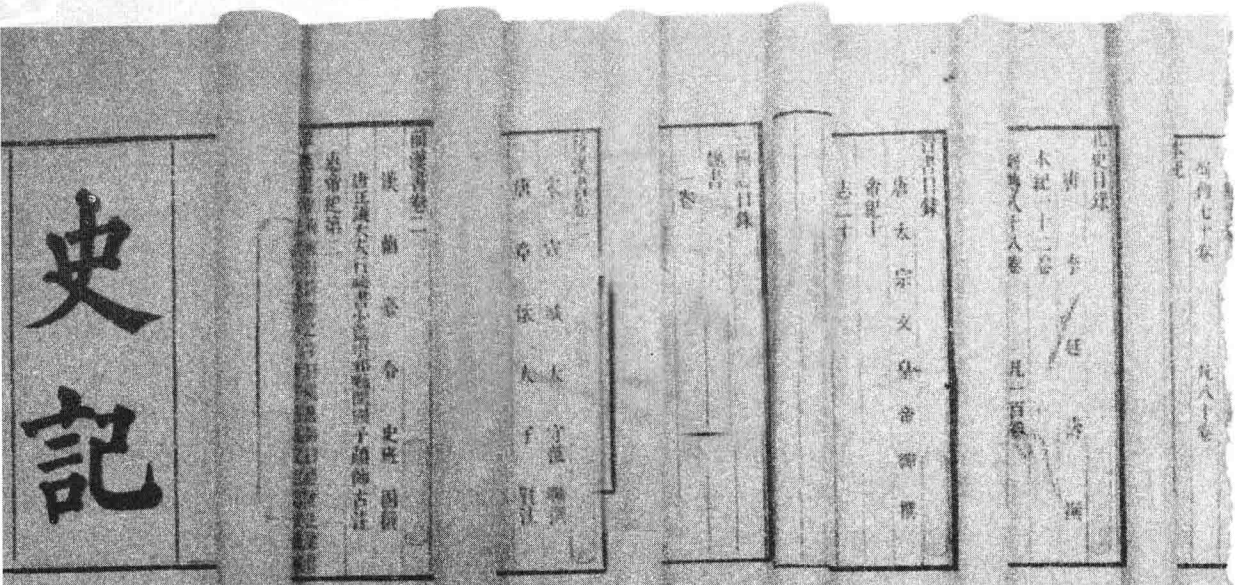 史記
前漢書卷二
漢蘭臺令史班固撰
唐正議大夫行祕書少監琅邪縣開國子顏師古注
惠帝紀第二
後漢書卷
宋宣城太守范曄撰
唐章懷太子賢注
國志目錄
魏書
晉書目錄
唐太宗文皇帝御撰
帝紀十
志二十
北史目錄
唐李延壽撰
本紀一十二卷
列傳八十八卷 凡一百卷
列傳七十卷 凡八十卷
本紀